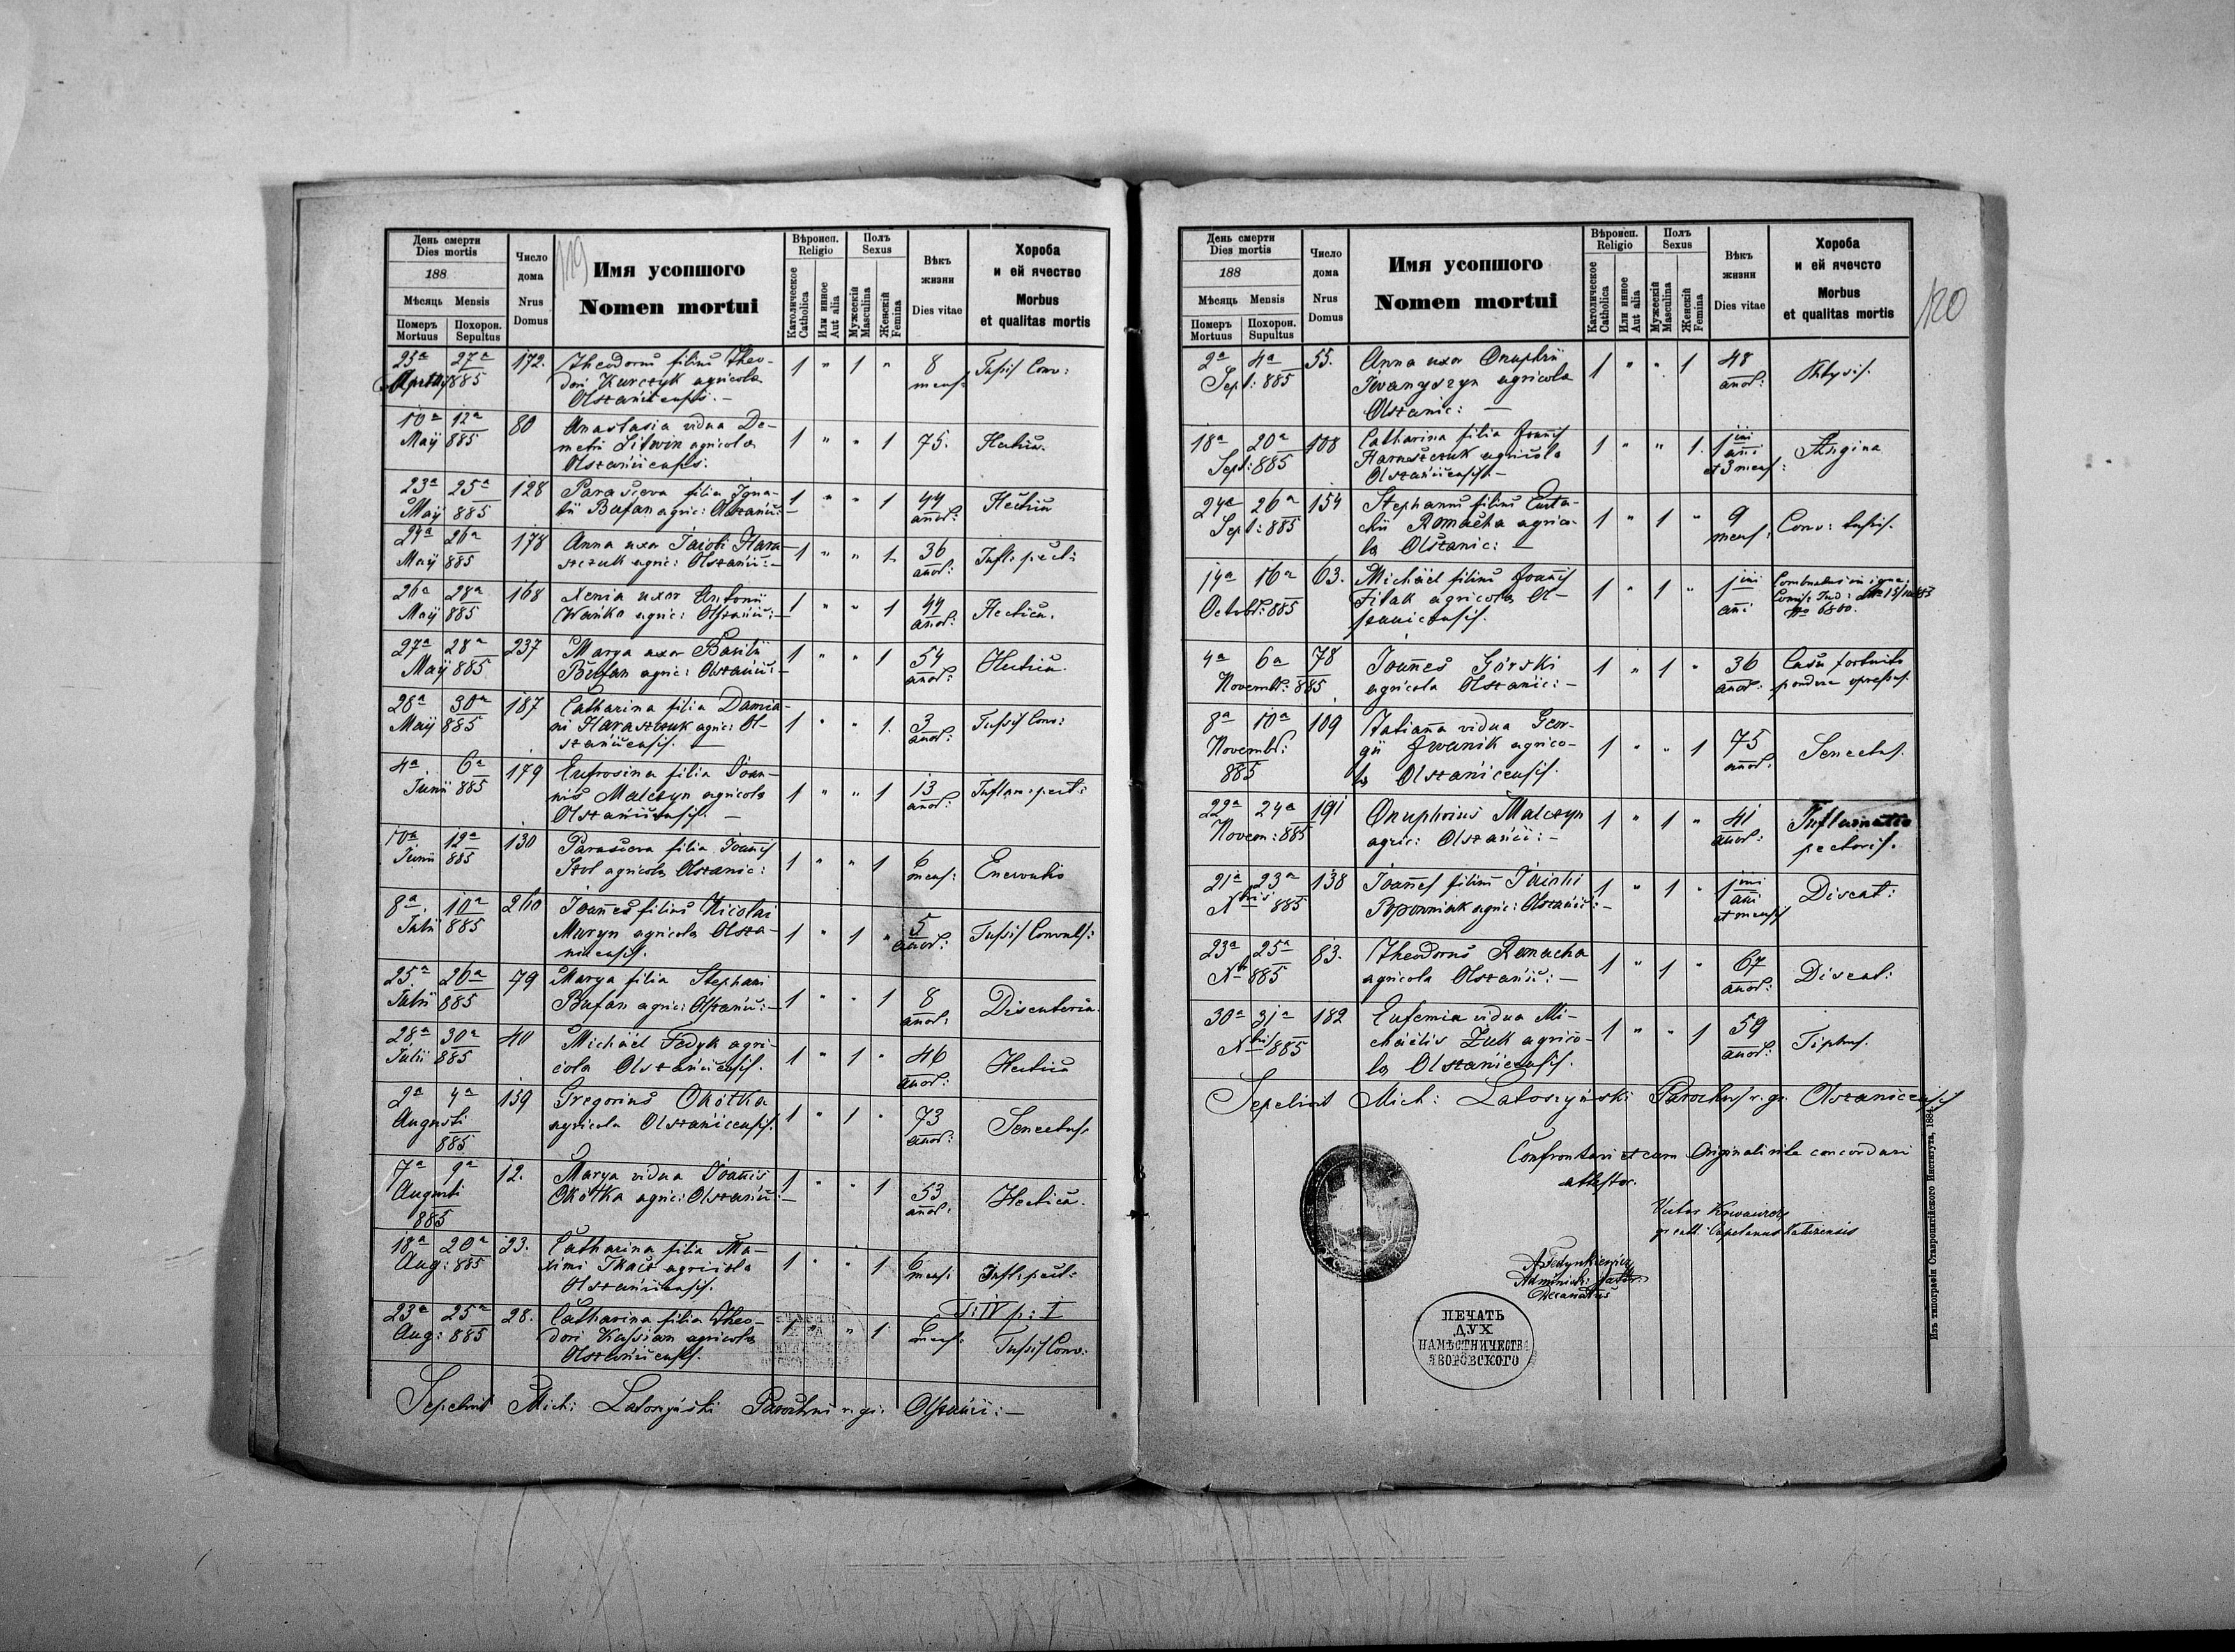 119
День смерти
Dies mortis
188
Мѣсяць Mensis
Померъ Похорон.
Mortuus Sepultus
Число
дома
Nrus
Domus
Имя усопшого
Nomen mortui
Вѣроисп.
Religio
Католическое
Catholica
Или инное
Aut alia
Полъ
Sexus
Мужескій
Masculina
Женскій
Femina
Вѣкъ
жизни
Dies vitae
Хороба
и ей ячество
Morbus
et qualitas mortis
25a 27a 172. Theodorus filius Theo- 1 " 1 " 8 Tussis Conv:
885 dori Kurczyk agricola mens:
Olszanicensis. —
10a 12a 80 Anastasia vidua De- 1 " " 1 75. Hectica.
Maij 885 metri Litwin agricola
Olszanicensis.
23a 25a 128 Parasceva filia Igna- 1 " " 1 44 Hectica
Maij 885 tii Bufan agric: Olszanic: — annor:
24a 26a 178 Anna uxor Jacobi Hara- 1 " " 1 36 Infl: pect:
Maij 885 szczuk agric: Olszanic: — annor:
26a 28a 168 Xenia uxor Antonii 1 " " 1 44 Hectica.
Maij 885 Wańko agric: Olszanic: — annor:
27a 28a 237 Marya uxor Basilii 1 " " 1 54 Hectica.
Maij 885 Bufan agric: Olszanic: — annor:
28a 30a 187 Catharina filia Damia- 1 " " 1. 3 Tussis Conv:
Maij 885 ni Haraszczuk agric: Ol- annor:
szanicensis. —
4a 6a 179 Eufrosina filia Joan- 1 " " 1 13 Inflam: pect:
Junii 885 nis Malczyn agricola annor:
Olszanicensis. —
10a 12a 130 Parasceva filia Joannis 1 " " 1 6 Enervatio
Junii 885 agricola Olszanic: mens:
8a 10a 260 Joannes filius Nicolai 1 " 1 " 5 Tussis Convuls:
Julii 885 Muryn agricola Olsza- annor:
nicensis.
25a 26a 79 Marya filia Stephani 1 " " 1 8 Disenteria.
Julii 885 Bufan agric: Olszanic: — annor:
28a 30a 40 Michaël Fedyk agri- 1 " 1 " 46 Hectica
Julii 885 cola Olszanicensis. annor:
2a 4a 159 Gregorius Okótka 1 " 1 " 73 Senectus.
Augusti agricola Olszanicensis. annor:
885
7a 9a 12. Marya vidua Joannis 1 " " 1 53 Hectica.
Augusti Okótka agric: Olszanic: — annor:
885
18a 20a 23. Catharina filia Ma- 1 " " 1 6 Infl: pect:
Aug: 885 ximi Tkacz agricola mens:
Olszanicensis.
T: IV p: I
23a 25a 28. Catharina filia Theo- 1 " " 1 6 Tussis Conv:
Aug: 885 dori Kassian agricola mens:
Olszanicensis.
Sepelivit Mich: Łatoszyński Parochus r. gr. Olszanic: —
120
День смерти
Dies mortis
188
Мѣсяць Mensis
Померъ Похорон.
Mortuus Supultus
Число
дома
Nrus
Domus
Имя усопшого
Nomen mortui
Вѣроисп.
Religio
Католическое
Catholica
Или инное
Aut alia
Полъ
Sexus
Мужескій
Masculina
Женскій
Femina
Вѣкъ
жизни
Dies vitae
Хороба
и ей ячечсто
Morbus
et qualitas mortis
2a 4a 55. Anna uxor Onuphrii 1 " " 1 48 Phtysis.
Sept: 885 Iwanyszyn agricola annor:
Olszanic: —
18a 20a 108 Catharina filia Joannis 1 " " 1. 1ius Angina
Sept: 885 Haraszczuk agricola anni
Olszanicensis. — et 3 mens:
24a 26a 154 Stephanus filius Eusta- 1 " 1 " 9 Conv: tussis.
Sept: 885 chii Romacha agrico- mens:
la Olszanic: —
14a 16a 63. Michaël filius Joannis 1 " 1 " 1ius Combustus in igne:
Octobr: 885 Fitak agricola Ol- anni
szanicensis. No 6800.
4a 6a 78 Joannes Górski 1 " 1 " 36 Casu fortuito
Novembr: 885 agricola Olszanic: — annor: pondere opressus.
8a 10a 109 Tatianna vidua Geor- 1 " " 1 75 Senectus.
Novembr: gii Iwanik agrico- annor:
885 la Olszanicensis.
22a 24a 191 Onuphrius Malczyn 1 " 1 " 41 Inflamatio
Novem: 885 agric: Olszanic: — annor: pectoris.
21a 23a 138 Joannes filius 1 " 1 " 1ius Discat:
Xbris 885 Popowniak agric: Olszanic: — anni
et mensis
23a 25a 83. Theodorus Romacha 1 " 1 " 67 Discat:
Xbr 885 agricola Olszanic: — annor:
30a 31a 182 Eufemia vidua Mi- 1 " " 1 59 Tiphus.
Xbris 885 chaëlis Żuk agrico- annor:
la Olszanicensis.
Sepelivit Mich: Łatoszyński Parochus r. gr. Olszanicensis
Confrontavi et cum Originali rite concordare
attestor.
Victor
gr cath: Capelanus
Administr:
Decanatus
ПЕЧАТЬ
ДУХ
НАМѢСТНИЧЕСТВА
ЯВОРОВСКОГО
Изъ типографіи Ставропигійского Института, 1884.